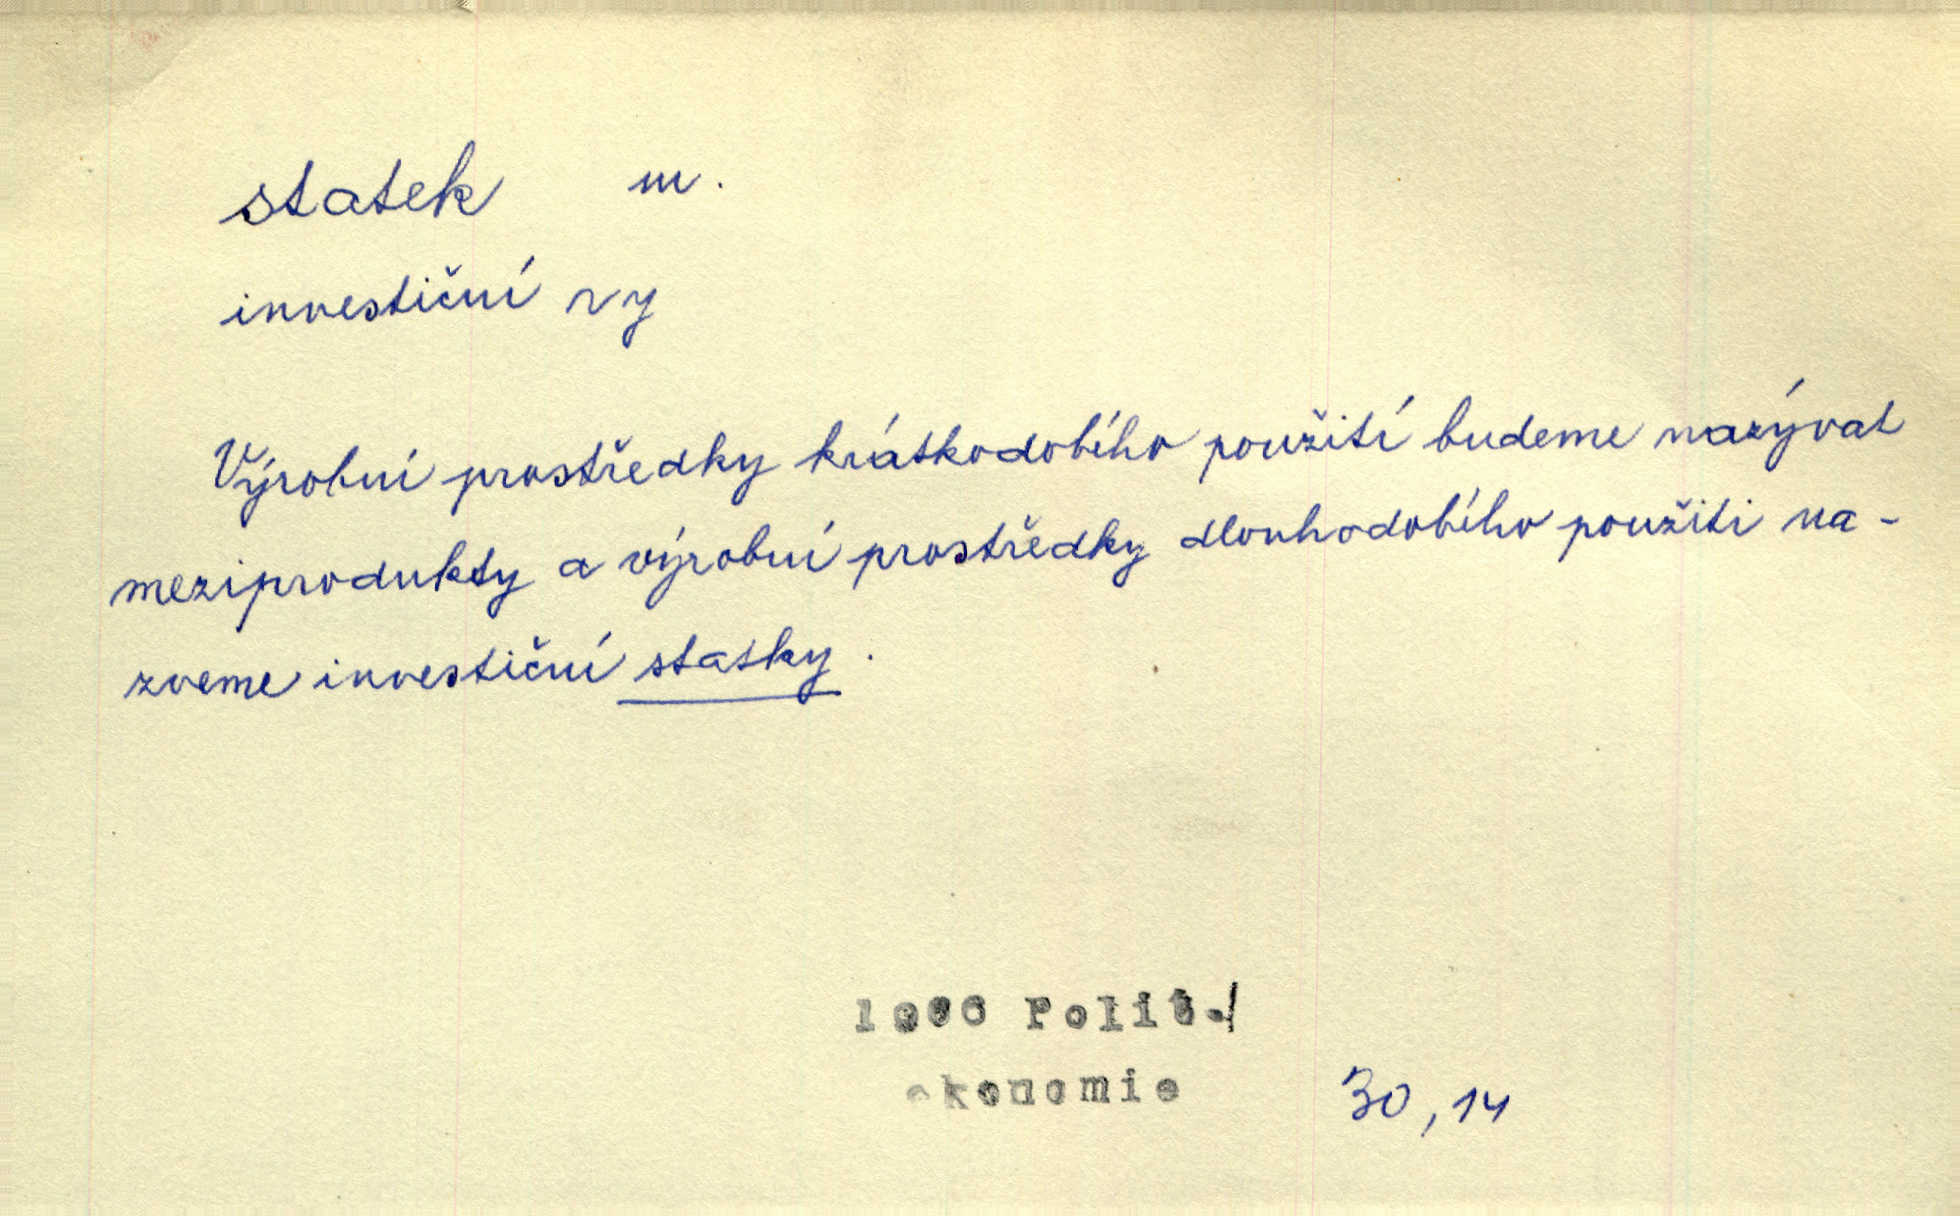 statek m.
investiční
Výrobní prostředky krátkodobého použití budeme nazývat
meziprodukty a výrobní prostředky dlouhodobého použiti na-
zveme investiční statky.
Polit.
ekonomie 30,14